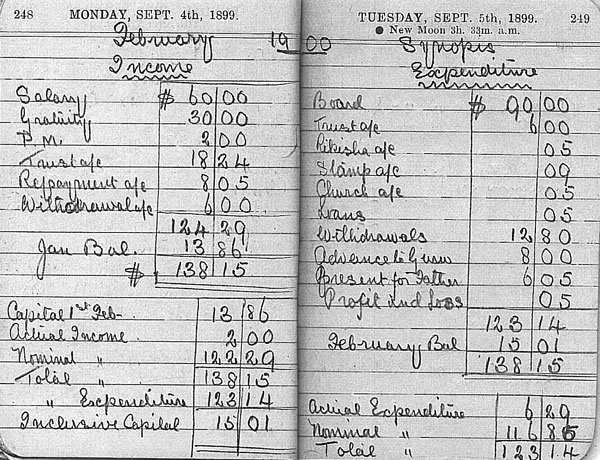 248 MONDAY, SEPT. 4th, 1899.
February 19
Income
Salary $ 60 00
Gratuity 30 00
P.M. 2 00
Trust a/c 18 24
Repayment a/c 8 05
Withdrawal a/c 6 00
124 29
Jan Bal. 13 86
$ 138 15
Capital 1st Feb- 13 86
Actual Income 2 00
Nominal " 122 29
Total " 138 15
" Expenditure 123 14
Inclusive Capital 15 01
TUESDAY, SEPT. 5th, 1899. 249
● New Moon 3h. 33m. a.m.
00 Synopsis
Expenditure
Board $ 90 00
Trust a/c 6 00
Rikisha a/c 05
Stamp a/c 09
Church a/c 05
Loans 05
Withdrawals 12 80
Advance to 8 00
Present for Father 6 05
Profit and Loss 05
123 14
February Bal 15 01
138 15
Actual Expenditure 6 29
Nominal " 116 85
Total " 123 14